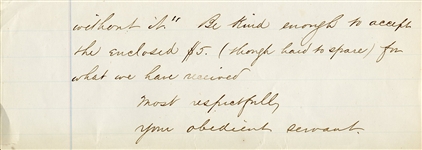 without it" Be kind enough to accept
the enclosed $5. (though hard to spare) for
what we have received
Most respectfully
your obedient servant.